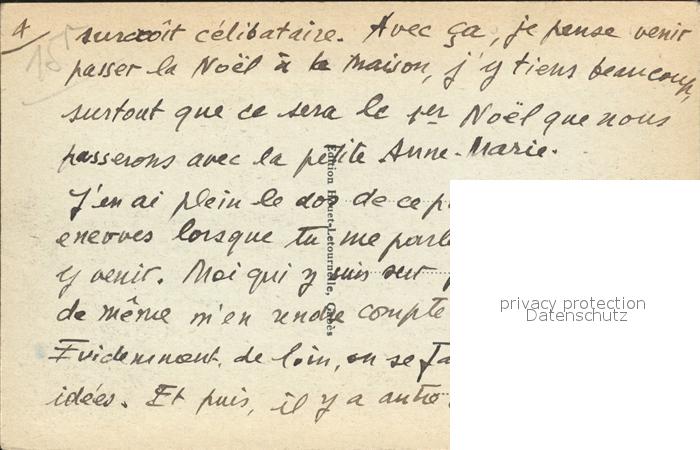 4
15F
surcroît célibataire. Avec ça, je pense venir
passer la Noël à la maison, j'y tiens beaucoup,
surtout que ce sera le 1er Noël que nous
passerons avec la petite Anne-Marie.
J'en ai plein le dos de ce
enerves lorsque tu me parle
y venir. Moi qui y suis sur
de même m'en rendre compte
Evidemment, de loin, on se fa
idées. Et puis, il y a autre
Edition Houet-Letournelle, Gabès
privacy protection
Datenschutz